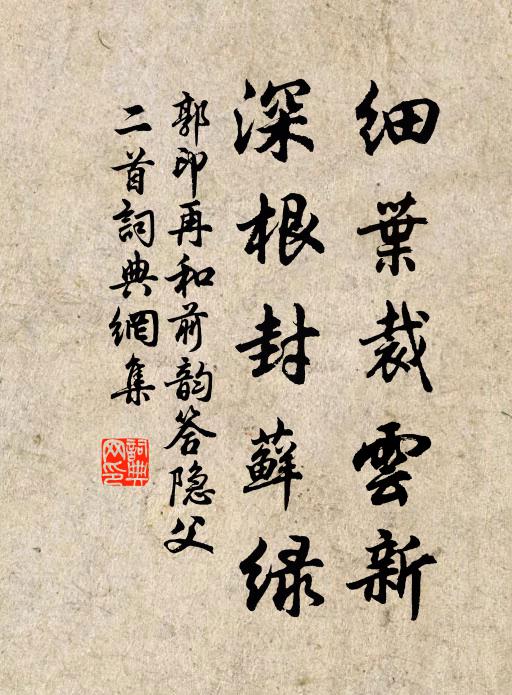 細葉裁雲新
深根封蘚綠
郭印再和前韵答隐父
二首詞典網集
詞典网印